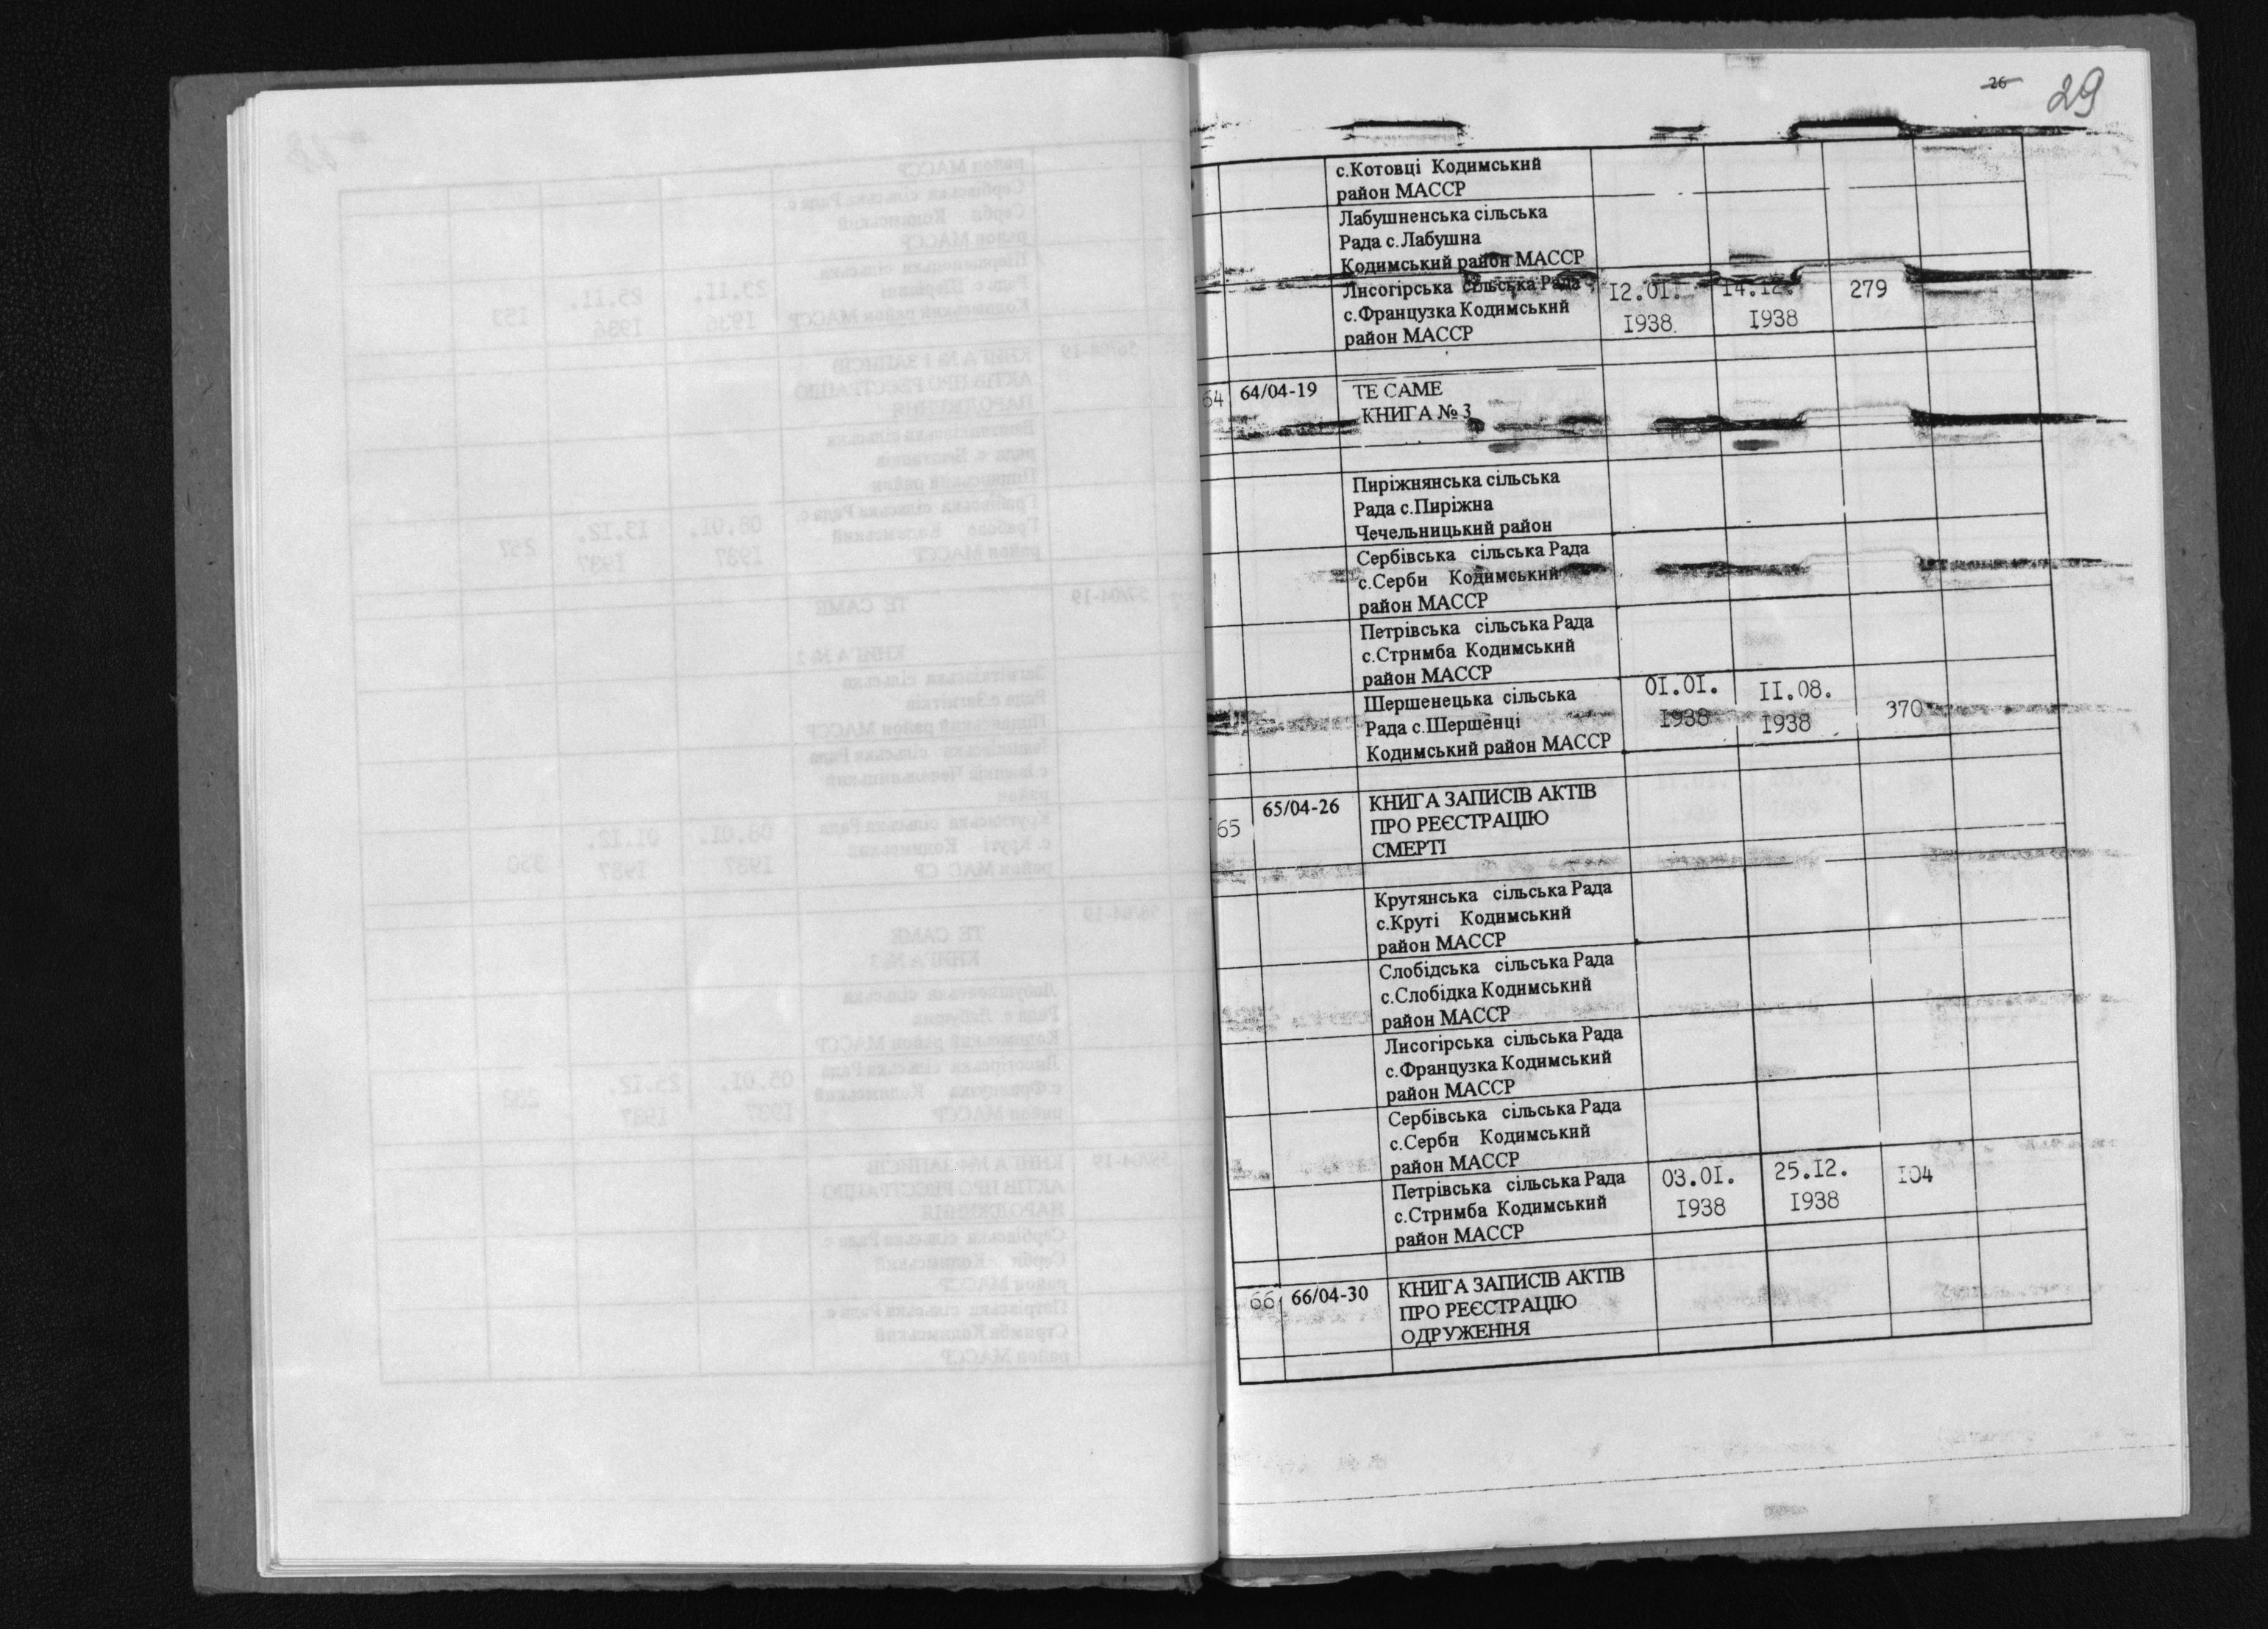 26 29
с.Котовці Кодимський
район МАССР
Лабушненська сільська
Рада с.Лабушна
Кодимський район МАССР
Лисогірська сільська Рада 12.01. 14.12. 279
с.Французка Кодимський 1938. 1938
район МАССР
64 64/04-19 ТЕ САМЕ
КНИГА № 3
Пиріжнянська сільська
Рада с.Пиріжна
Чечельницький район
Сербівська сільська Рада
с.Серби Кодимський
район МАССР
Петрівська сільська Рада
с.Стримба Кодимський
район МАССР
Шершенецька сільська 01.01. 11.08. 370
Рада с.Шершенці 1938 1938
Кодимський район МАССР
65 65/04-26 КНИГА ЗАПИСІВ АКТІВ
ПРО РЕЄСТРАЦІЮ
СМЕРТІ
Крутянська сільська Рада
с.Круті Кодимський
район МАССР
Слобідська сільська Рада
с.Слобідка Кодимський
район МАССР
Лисогірська сільська Рада
с.Французка Кодимський
район МАССР
Сербівська сільська Рада
с.Серби Кодимський
район МАССР
Петрівська сільська Рада 03.01. 25.12. 104
с.Стримба Кодимський 1938 1938
район МАССР
66 66/04-30 КНИГА ЗАПИСІВ АКТІВ
ПРО РЕЄСТРАЦІЮ
ОДРУЖЕННЯ